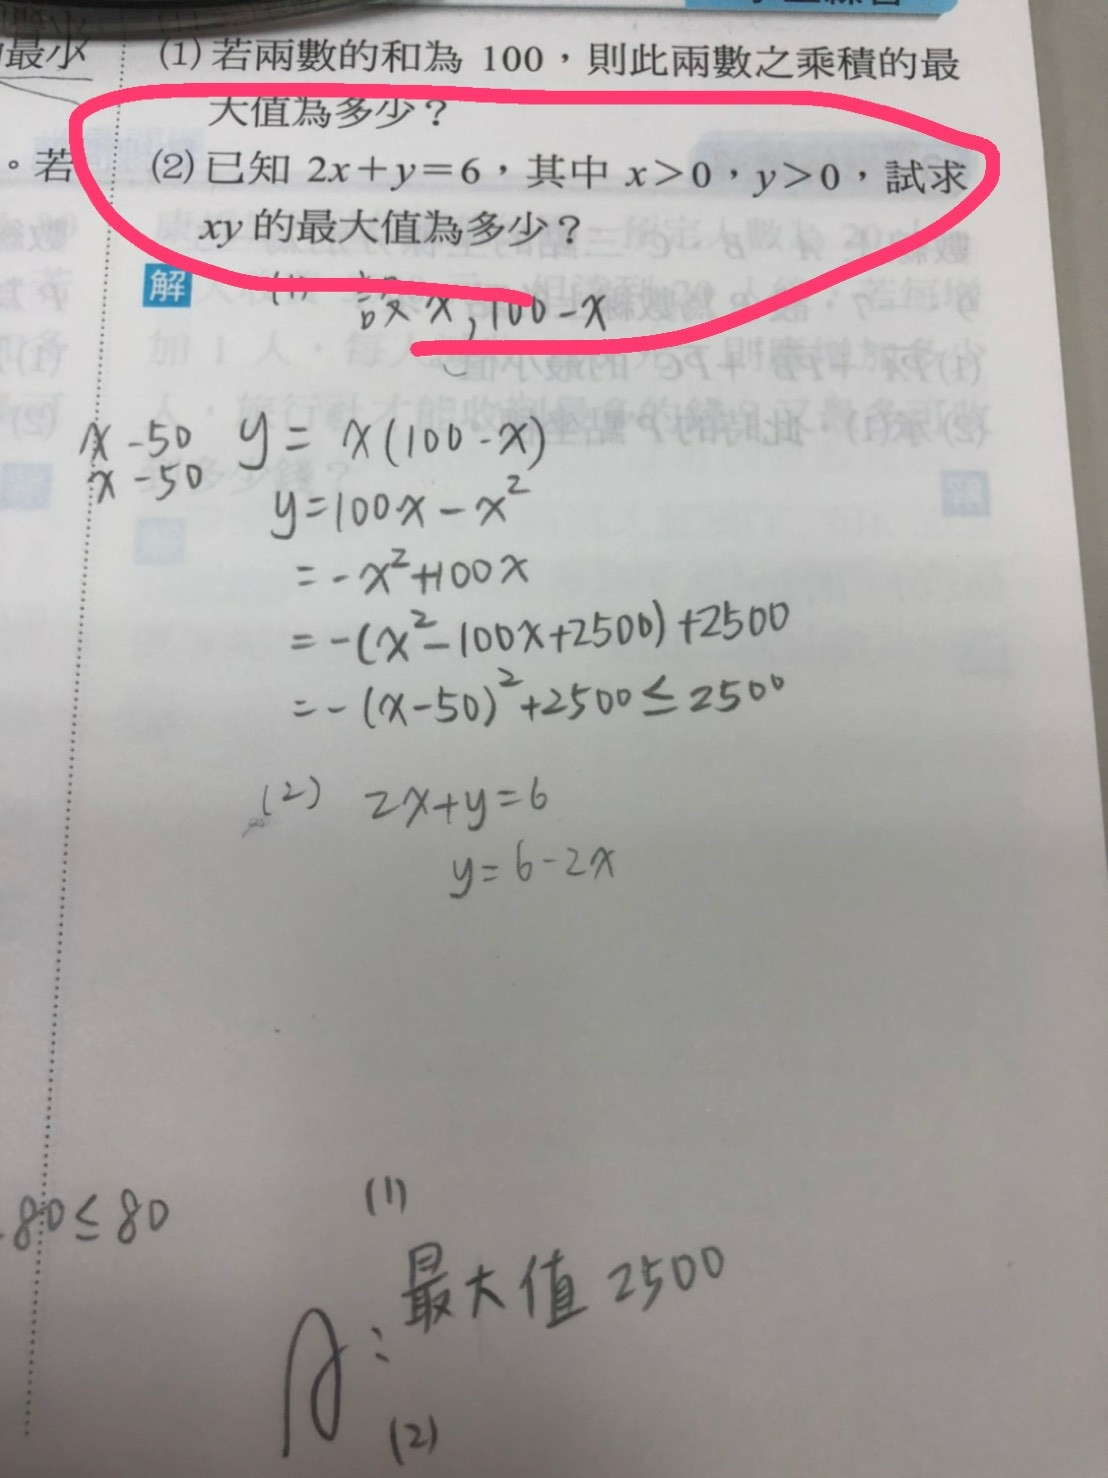 最小
(1) 若兩數的和為 100，則此兩數之乘積的最
大值為多少？
。若
(2) 已知 2x+y=6，其中 x>0，y>0，試求
xy 的最大值為多少？
解
(1) 設 x, 100-x
x-50
x-50
y= x(100-x)
y=100x-x²
=-x²+100x
=-(x²-100x+2500)+2500
=-(x-50)²+2500≤2500
(2) 2x+y=6
y=6-2x
80≤80
(1)
最大值 2500
A:
(2)